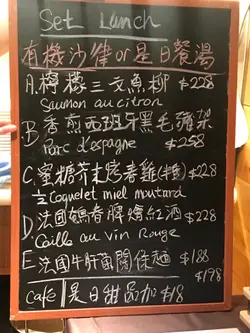 Set Lunch
有機沙律 or 是日餐湯
A. 檸檬三文魚柳 $228
Saumon au citron
B 香煎西班牙黑毛豬架
Porc d'espagne $258
C. 蜜糖芥末烤春雞(半隻) $228
½ Coquelet miel moutard
D 法國鵪春脾燴紅酒 $228
Caille au vin Rouge
E 法國牛肝菌關係麵 $188
$198
Café 是日甜品加 $18